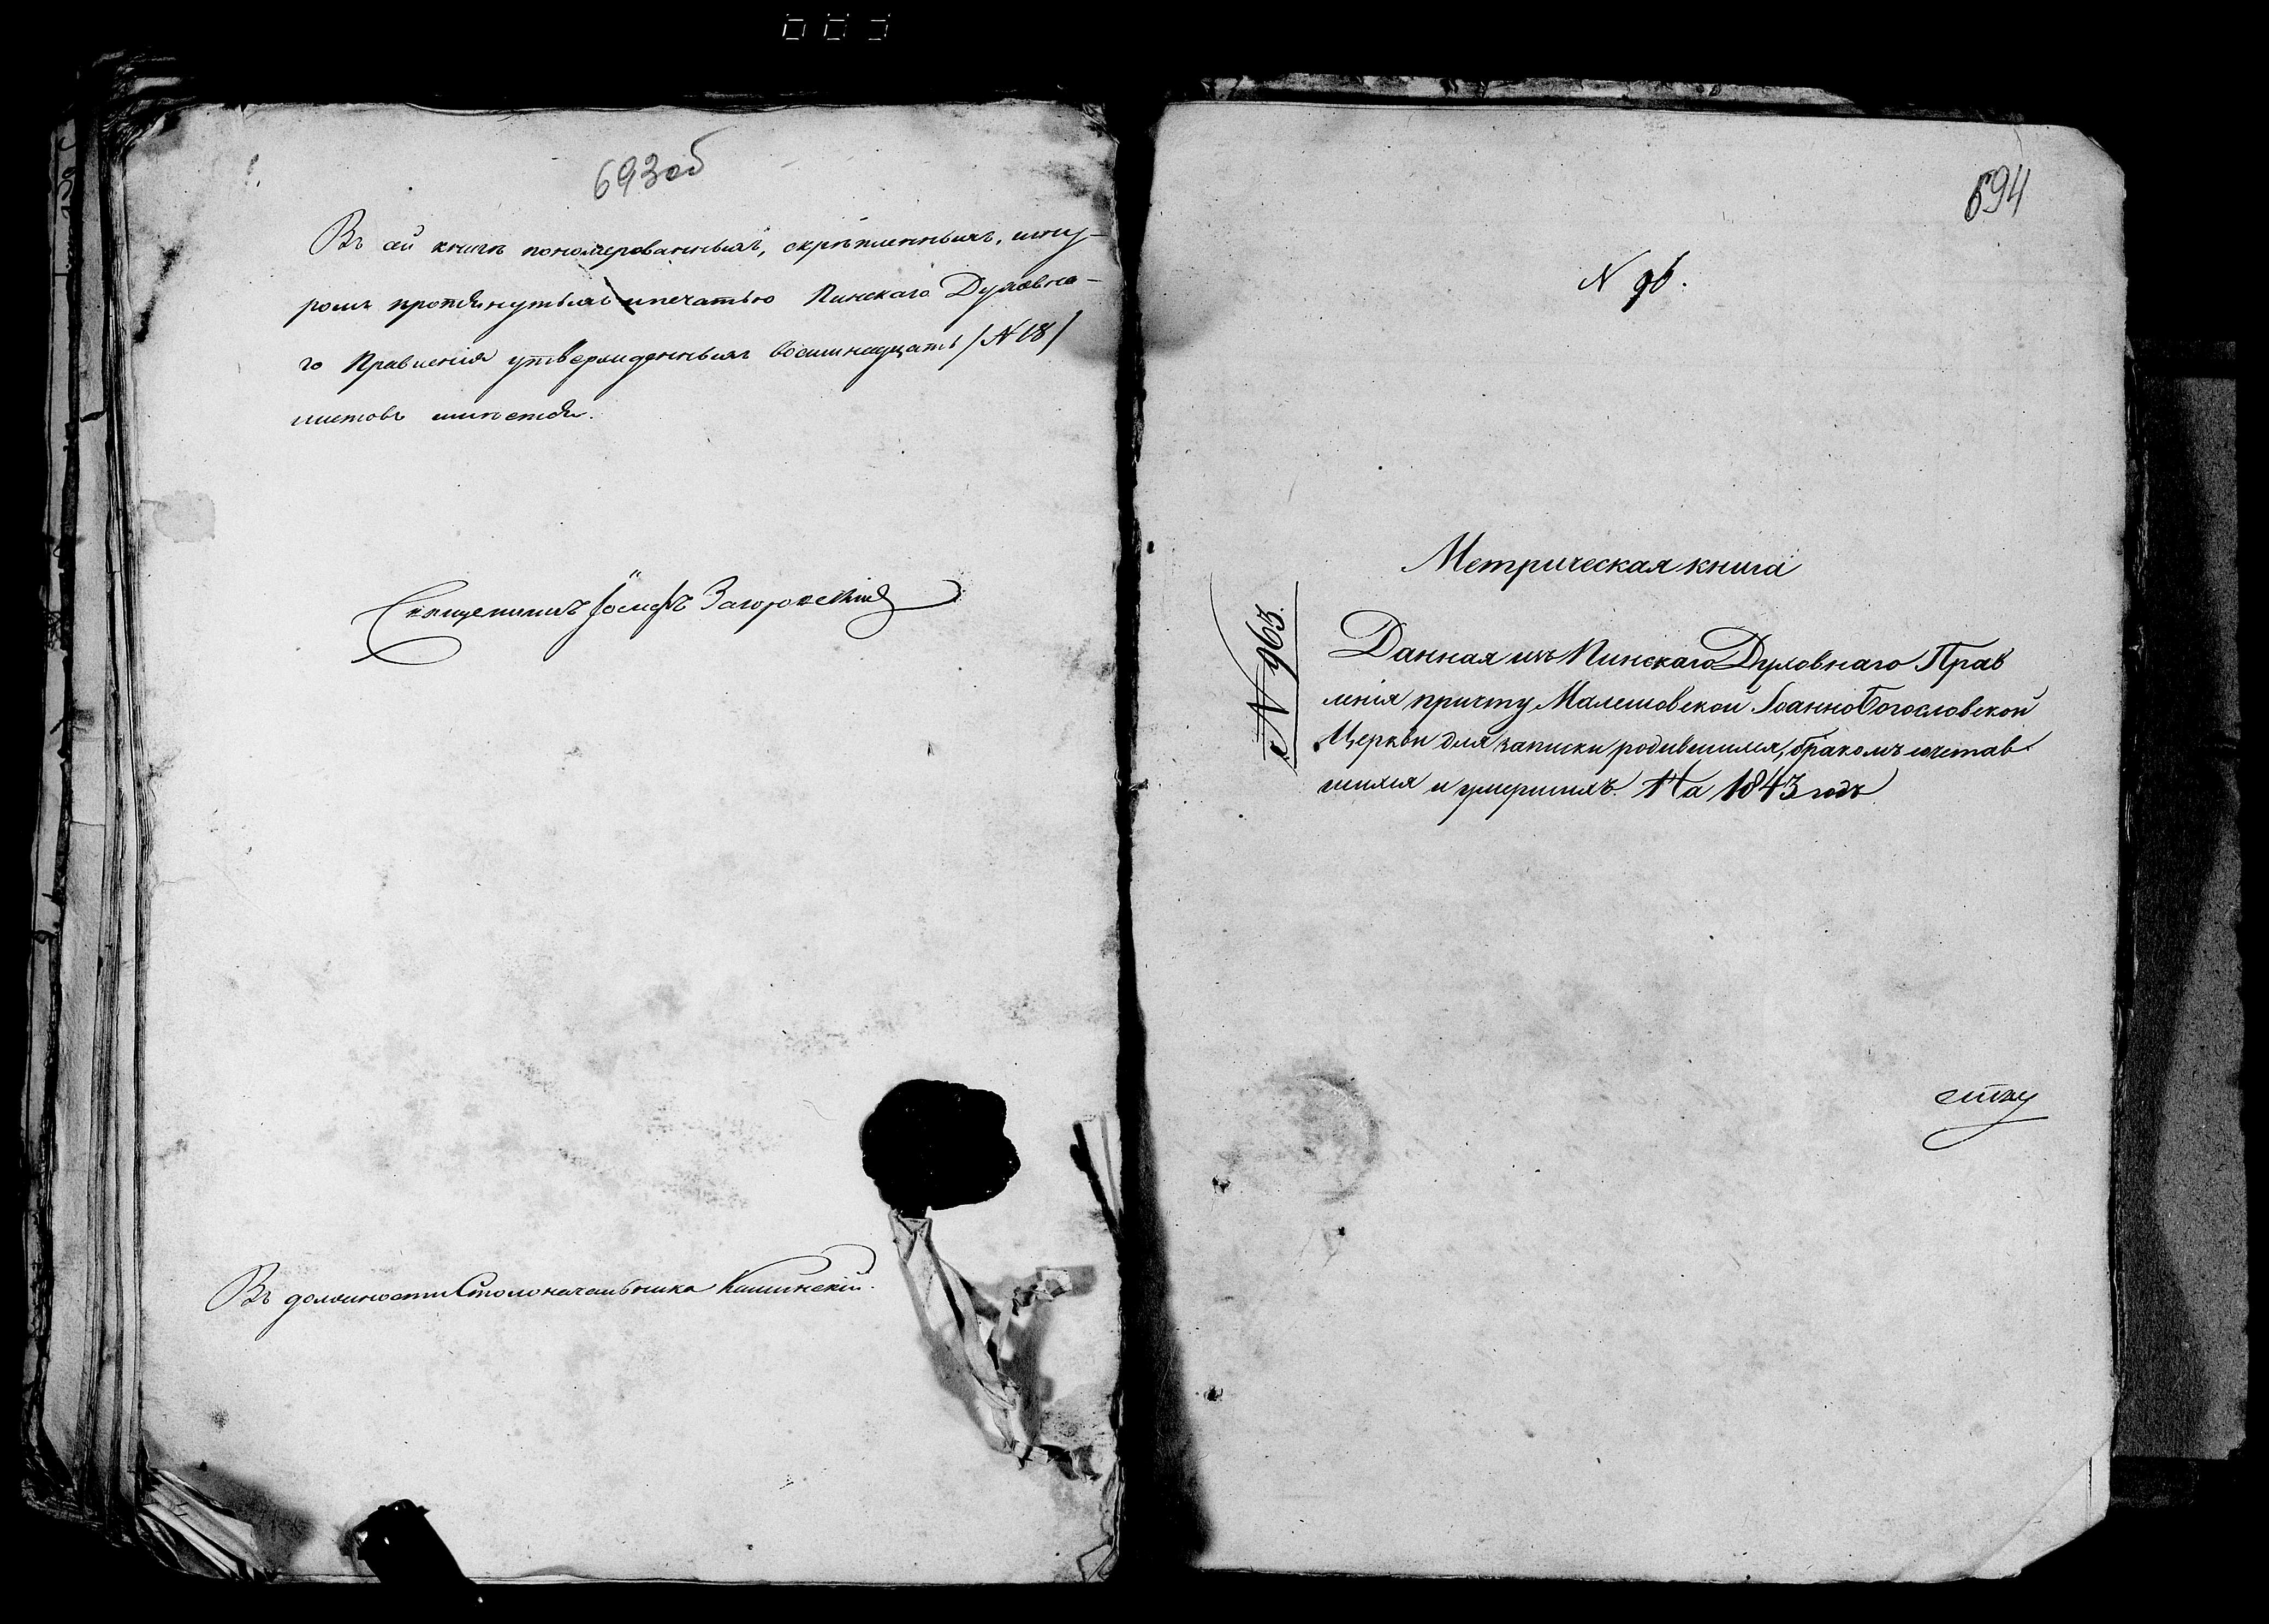 693об
Въ сей книгѣ пономерованныхъ, скрѣпленныхъ, шну-
ромъ протянутыхъ и печатью Пинскаго Духовна-
го Правленія утвержденныхъ восимнадцать /N 18/
листовъ имѣется.
Священникъ Іосифъ Загоровскій
Въ должности Столоначальника
694
N 96.
Метрическая книга
N 963.
Данная изъ Пинскаго Духовнаго Прав
ленія причту Малешовской Іоанно Богословской
Церкви для записки родившихся, бракомъ сочетав-
шихся и умершихъ. На 1843 годъ